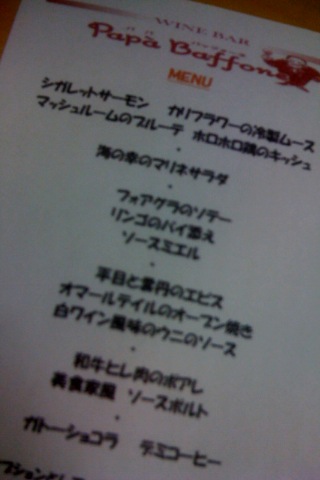 WINE BAR
Papà Baffone
MENU
シガレットサーモン カリフラワーの冷製ムース
マッシュルームのブルーテ ホロホロ鶏のキッシュ
海の幸のマリネサラダ
フォアグラのソテー
リンゴのパイ添え
ソースミエル
平目と雲丹のエピス
オマールテイルのオーブン焼き
白ワイン風味のウニのソース
和牛ヒレ肉のポアレ
美食家風 ソースポルト
ガトーショコラ デミコーヒー